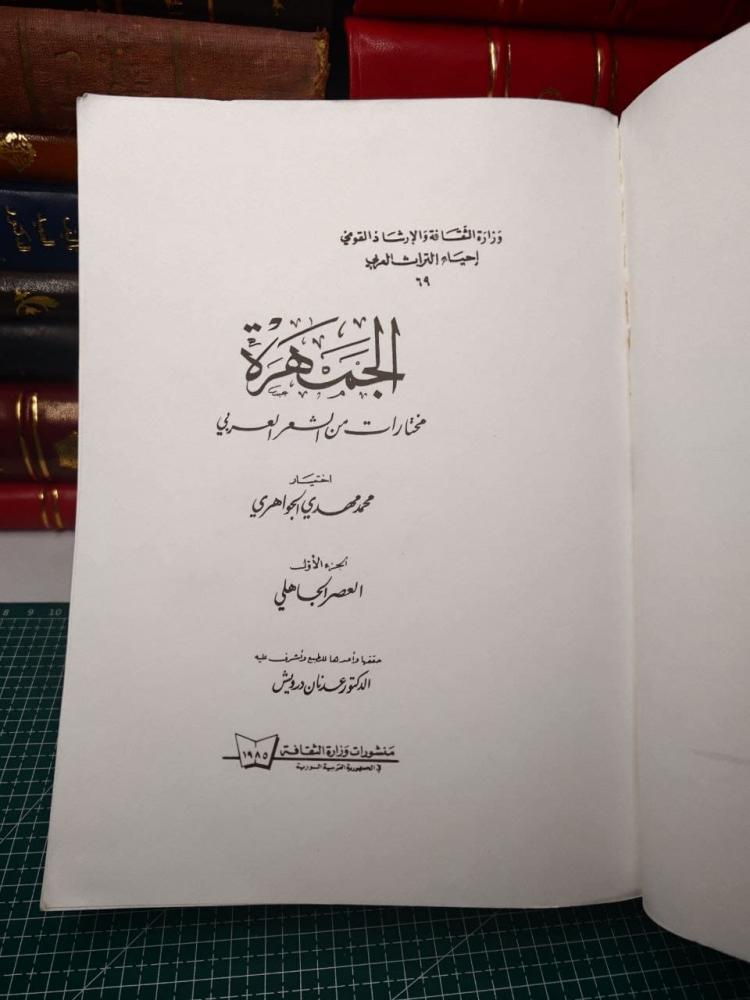 وزارة الثقافة والإرشاد القومي
إحياء التراث العربي
٦٩
الجمهرة
مختارات من الشعر العربي
اختيار
محمد مهدي الجواهري
الجزء الأول
العصر الجاهلي
حققها وأعدها للطبع وأشرف عليه
الدكتور عدنان درويش
منشورات وزارة الثقافة
في الجمهورية العربية السورية
١٩٨٥
8 9 10